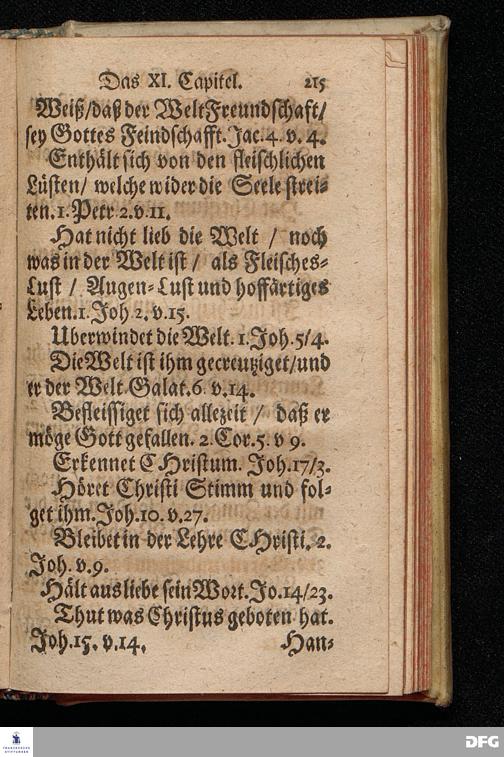 Das XI. Capitel. 215
Weiß/daß der Welt Freundschaft/
sey Gottes Feindschafft. Jac. 4. v. 4.
Enthält sich von den fleischlichen
Lüsten/ welche wider die Seele strei-
ten. 1. Petr. 2. v. 11.
Hat nicht lieb die Welt / noch
was in der Welt ist / als Fleisches-
Lust / Augen-Lust und hoffärtiges
Leben. 1. Joh 2. v. 15.
Uberwindet die Welt. 1. Joh. 5/4.
Die Welt ist ihm gecreutziget/und
er der Welt Galat. 6. v. 14.
Befleissiget sich allezeit / daß er
möge Gott gefallen. 2. Cor. 5. v 9.
Erkennet CHristum. Joh. 17/3.
Höret Christi Stimm und fol-
get ihm. Joh. 10. v. 27.
Bleibet in der Lehre CHristi. 2.
Joh. v. 9.
Hält aus liebe sein Wort. Jo. 14/23.
Thut was Christus geboten hat.
Joh. 15. v. 14. Han-
FRANCKESCHE
STIFTUNGEN
DFG